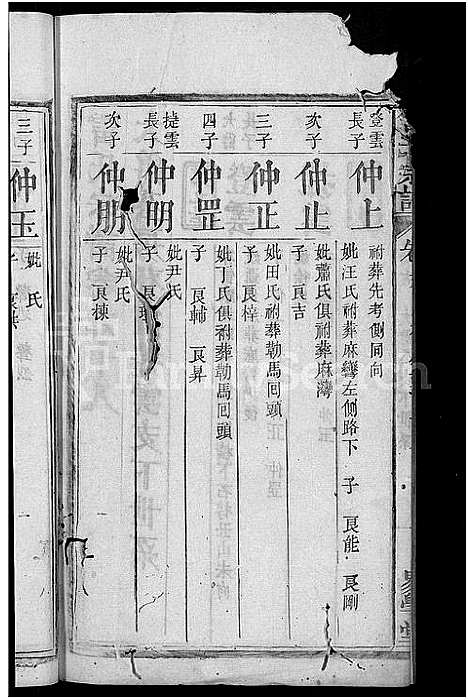 登雲
長子
仲上
祔葬先考側同向
妣汪氏祔葬麻灣左側路下 子 良能 良剛
次子
仲止
妣蕭氏俱祔葬麻灣
子 良吉
三子
仲正
妣田氏祔葬勒馬回頭
子 良梓
四子
仲罡
妣丁氏俱祔葬勒馬回頭
子 良輔 良昇
捷雲
長子
仲明
妣尹氏
子 良
次子
仲朋
妣尹氏
子 良棟
三子
仲玉
妣 氏
子